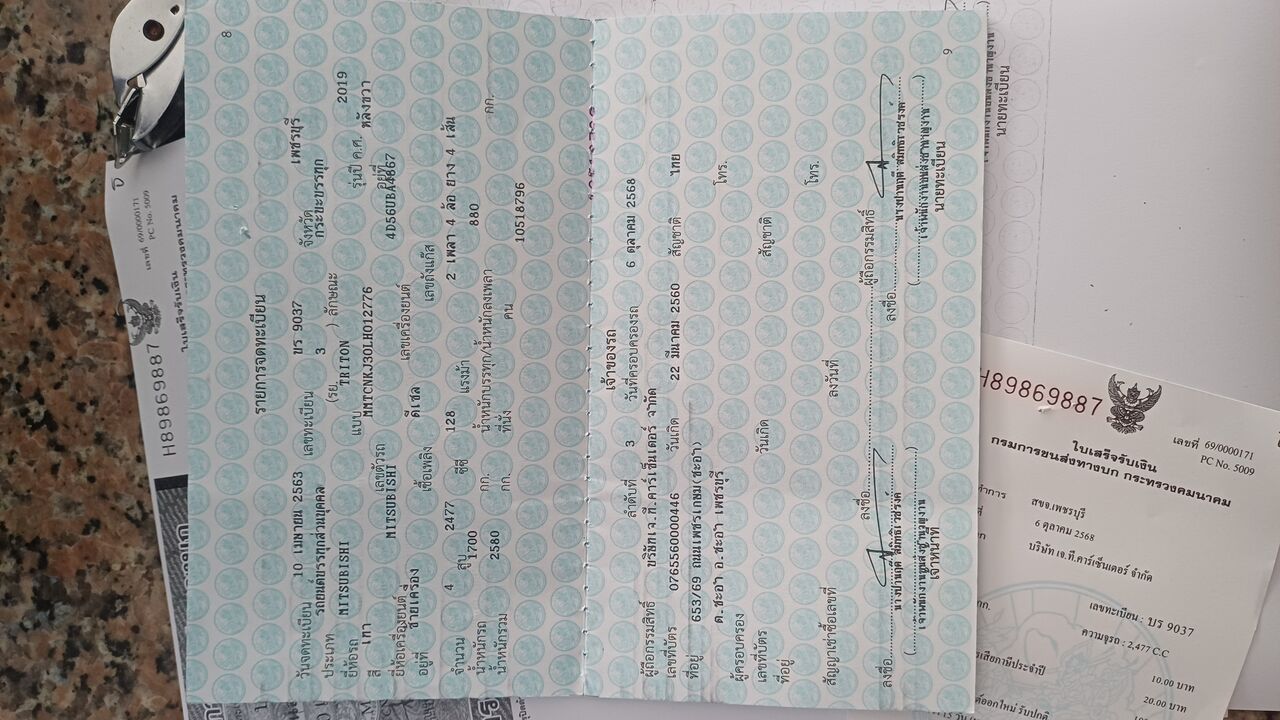 8
รายการจดทะเบียน
วันจดทะเบียน 10 เมษายน 2563 เลขทะเบียน บร 9037 จังหวัด เพชรบุรี
ประเภท รถยนต์บรรทุกส่วนบุคคล (รย. 3 ) ลักษณะ กระบะบรรทุก
ยี่ห้อรถ MITSUBISHI แบบ TRITON รุ่นปี ค.ศ. 2019
สี เทา เลขตัวรถ MMTCNKJ30LH012776 อยู่ที่ หลังขวา
ยี่ห้อเครื่องยนต์ MITSUBISHI เลขเครื่องยนต์ 4D56UBA4867
อยู่ที่ ซ้ายเครื่อง เชื้อเพลิง ดีเซล เลขถังแก๊ส
จำนวน 4 สูบ 2477 ซีซี 128 แรงม้า 2 เพลา 4 ล้อ ยาง 4 เส้น
น้ำหนักรถ 1700 กก. น้ำหนักบรรทุก/น้ำหนักลงเพลา 880 กก.
น้ำหนักรวม 2580 กก. ที่นั่ง คน
10518796
เจ้าของรถ
ลำดับที่ 3 วันที่ครอบครองรถ 6 ตุลาคม 2568
ผู้ถือกรรมสิทธิ์ บริษัทเจ.ที.คาร์เซ็นเตอร์ จำกัด
เลขที่บัตร 0765560000446 วันเกิด 22 มีนาคม 2560 สัญชาติ ไทย
ที่อยู่ 653/69 ถนนเพชรเกษม(ชะอำ) โทร.
ต.ชะอำ อ.ชะอำ เพชรบุรี
ผู้ครอบครอง
เลขที่บัตร วันเกิด สัญชาติ
ที่อยู่ โทร.
สัญญาเช่าซื้อเลขที่ ลงวันที่
ลงชื่อ ผู้ถือกรรมสิทธิ์
ลงชื่อ ลงชื่อ
เจ้าหน้าที่ นายทะเบียน
9
นายทะเบียน
H89869887
เลขที่ 69/0000171
PC No. 5009
ใบเสร็จรับเงิน
H89869887
เลขที่ 69/0000171
PC No. 5009
ใบเสร็จรับเงิน
กรมการขนส่งทางบก กระทรวงคมนาคม
สขจ.เพชรบุรี
6 ตุลาคม 2568
บริษัท เจ.ที.คาร์เซ็นเตอร์ จำกัด
เลขทะเบียน : บร 9037
ความจุรถ : 2,477 C.C
10.00 บาท
20.00 บาท